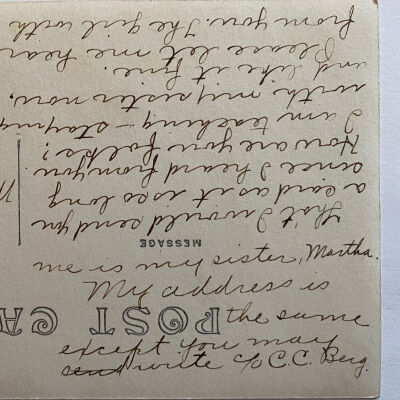 POST CA
MESSAGE
Tho't I would send you
a card as it is so long
since I heard from you.
How are you folks?
I am teaching – staying
with my sister now,
and like it fine.
Please let me hear
from you. The girl with
me is my sister, Martha.
My address is
the same
except you may
send write c/o C.C. Berg.